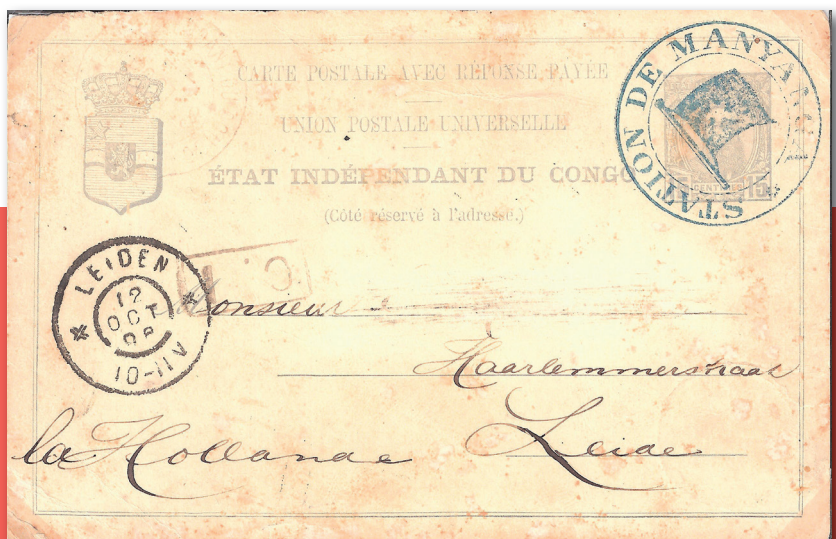 CARTE POSTALE AVEC RÉPONSE PAYÉE
UNION POSTALE UNIVERSELLE
ÉTAT INDÉPENDANT DU CONGO
(Côté réservé à l'adresse.)
STATION DE MANYANGA
CENTIMES 15
LEIDEN
12
OCT
10-11V
Monsieur
Haarlemmerstraat
Leide
la Hollande